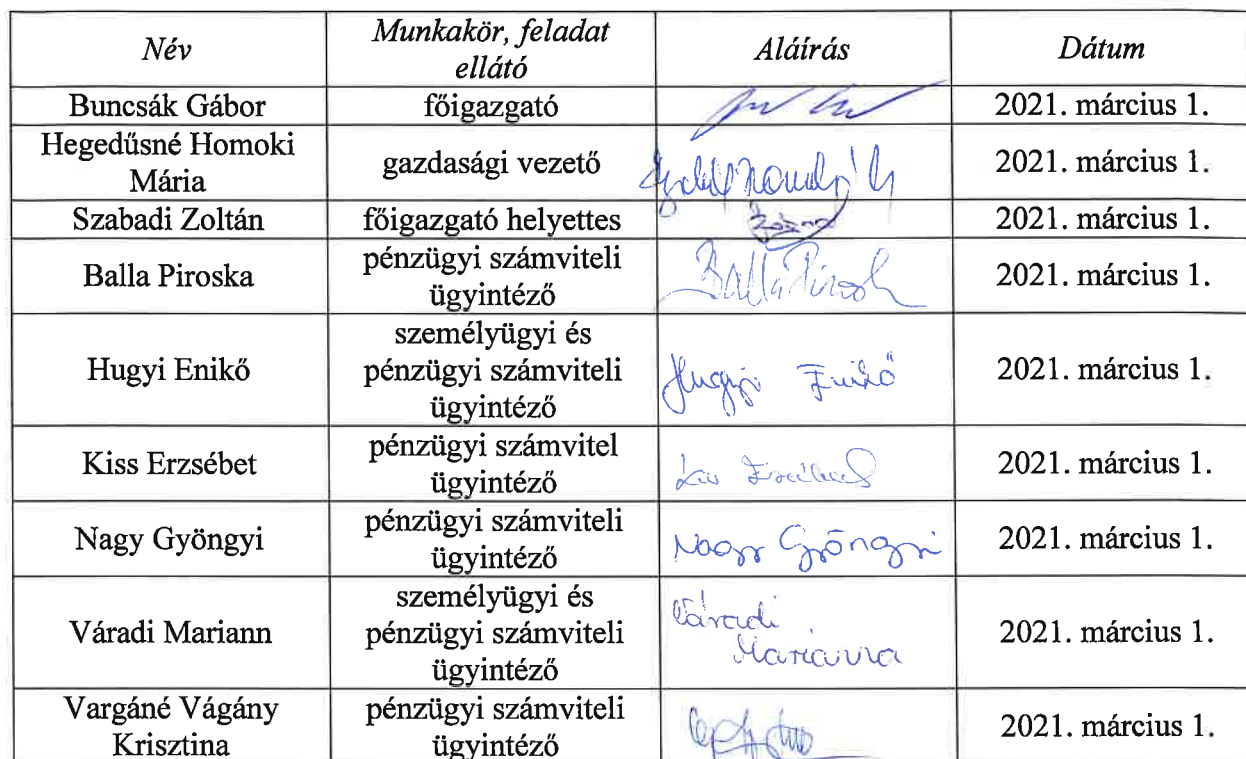 Név Munkakör, feladat ellátó Aláírás Dátum
Buncsák Gábor főigazgató 2021. március 1.
Hegedűsné Homoki Mária gazdasági vezető 2021. március 1.
Szabadi Zoltán főigazgató helyettes 2021. március 1.
Balla Piroska pénzügyi számviteli ügyintéző Balla Piroska 2021. március 1.
Hugyi Enikő személyügyi és pénzügyi számviteli ügyintéző Hugyi Enikő 2021. március 1.
Kiss Erzsébet pénzügyi számvitel ügyintéző 2021. március 1.
Nagy Gyöngyi pénzügyi számviteli ügyintéző Nagy Gyöngyi 2021. március 1.
Váradi Mariann személyügyi és pénzügyi számviteli ügyintéző Váradi Marianna 2021. március 1.
Vargáné Vágány Krisztina pénzügyi számviteli ügyintéző 2021. március 1.